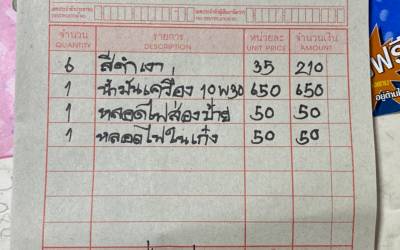 จำนวน รายการ หน่วยละ จำนวนเงิน
QUANTITY DESCRIPTION UNIT PRICE AMOUNT
6 สีดำเงา 35 210
1 น้ำมันเครื่อง 10W30 650 650
1 หลอดไฟส่องป้าย 50 50
1 หลอดไฟในเก๋ง 50 50